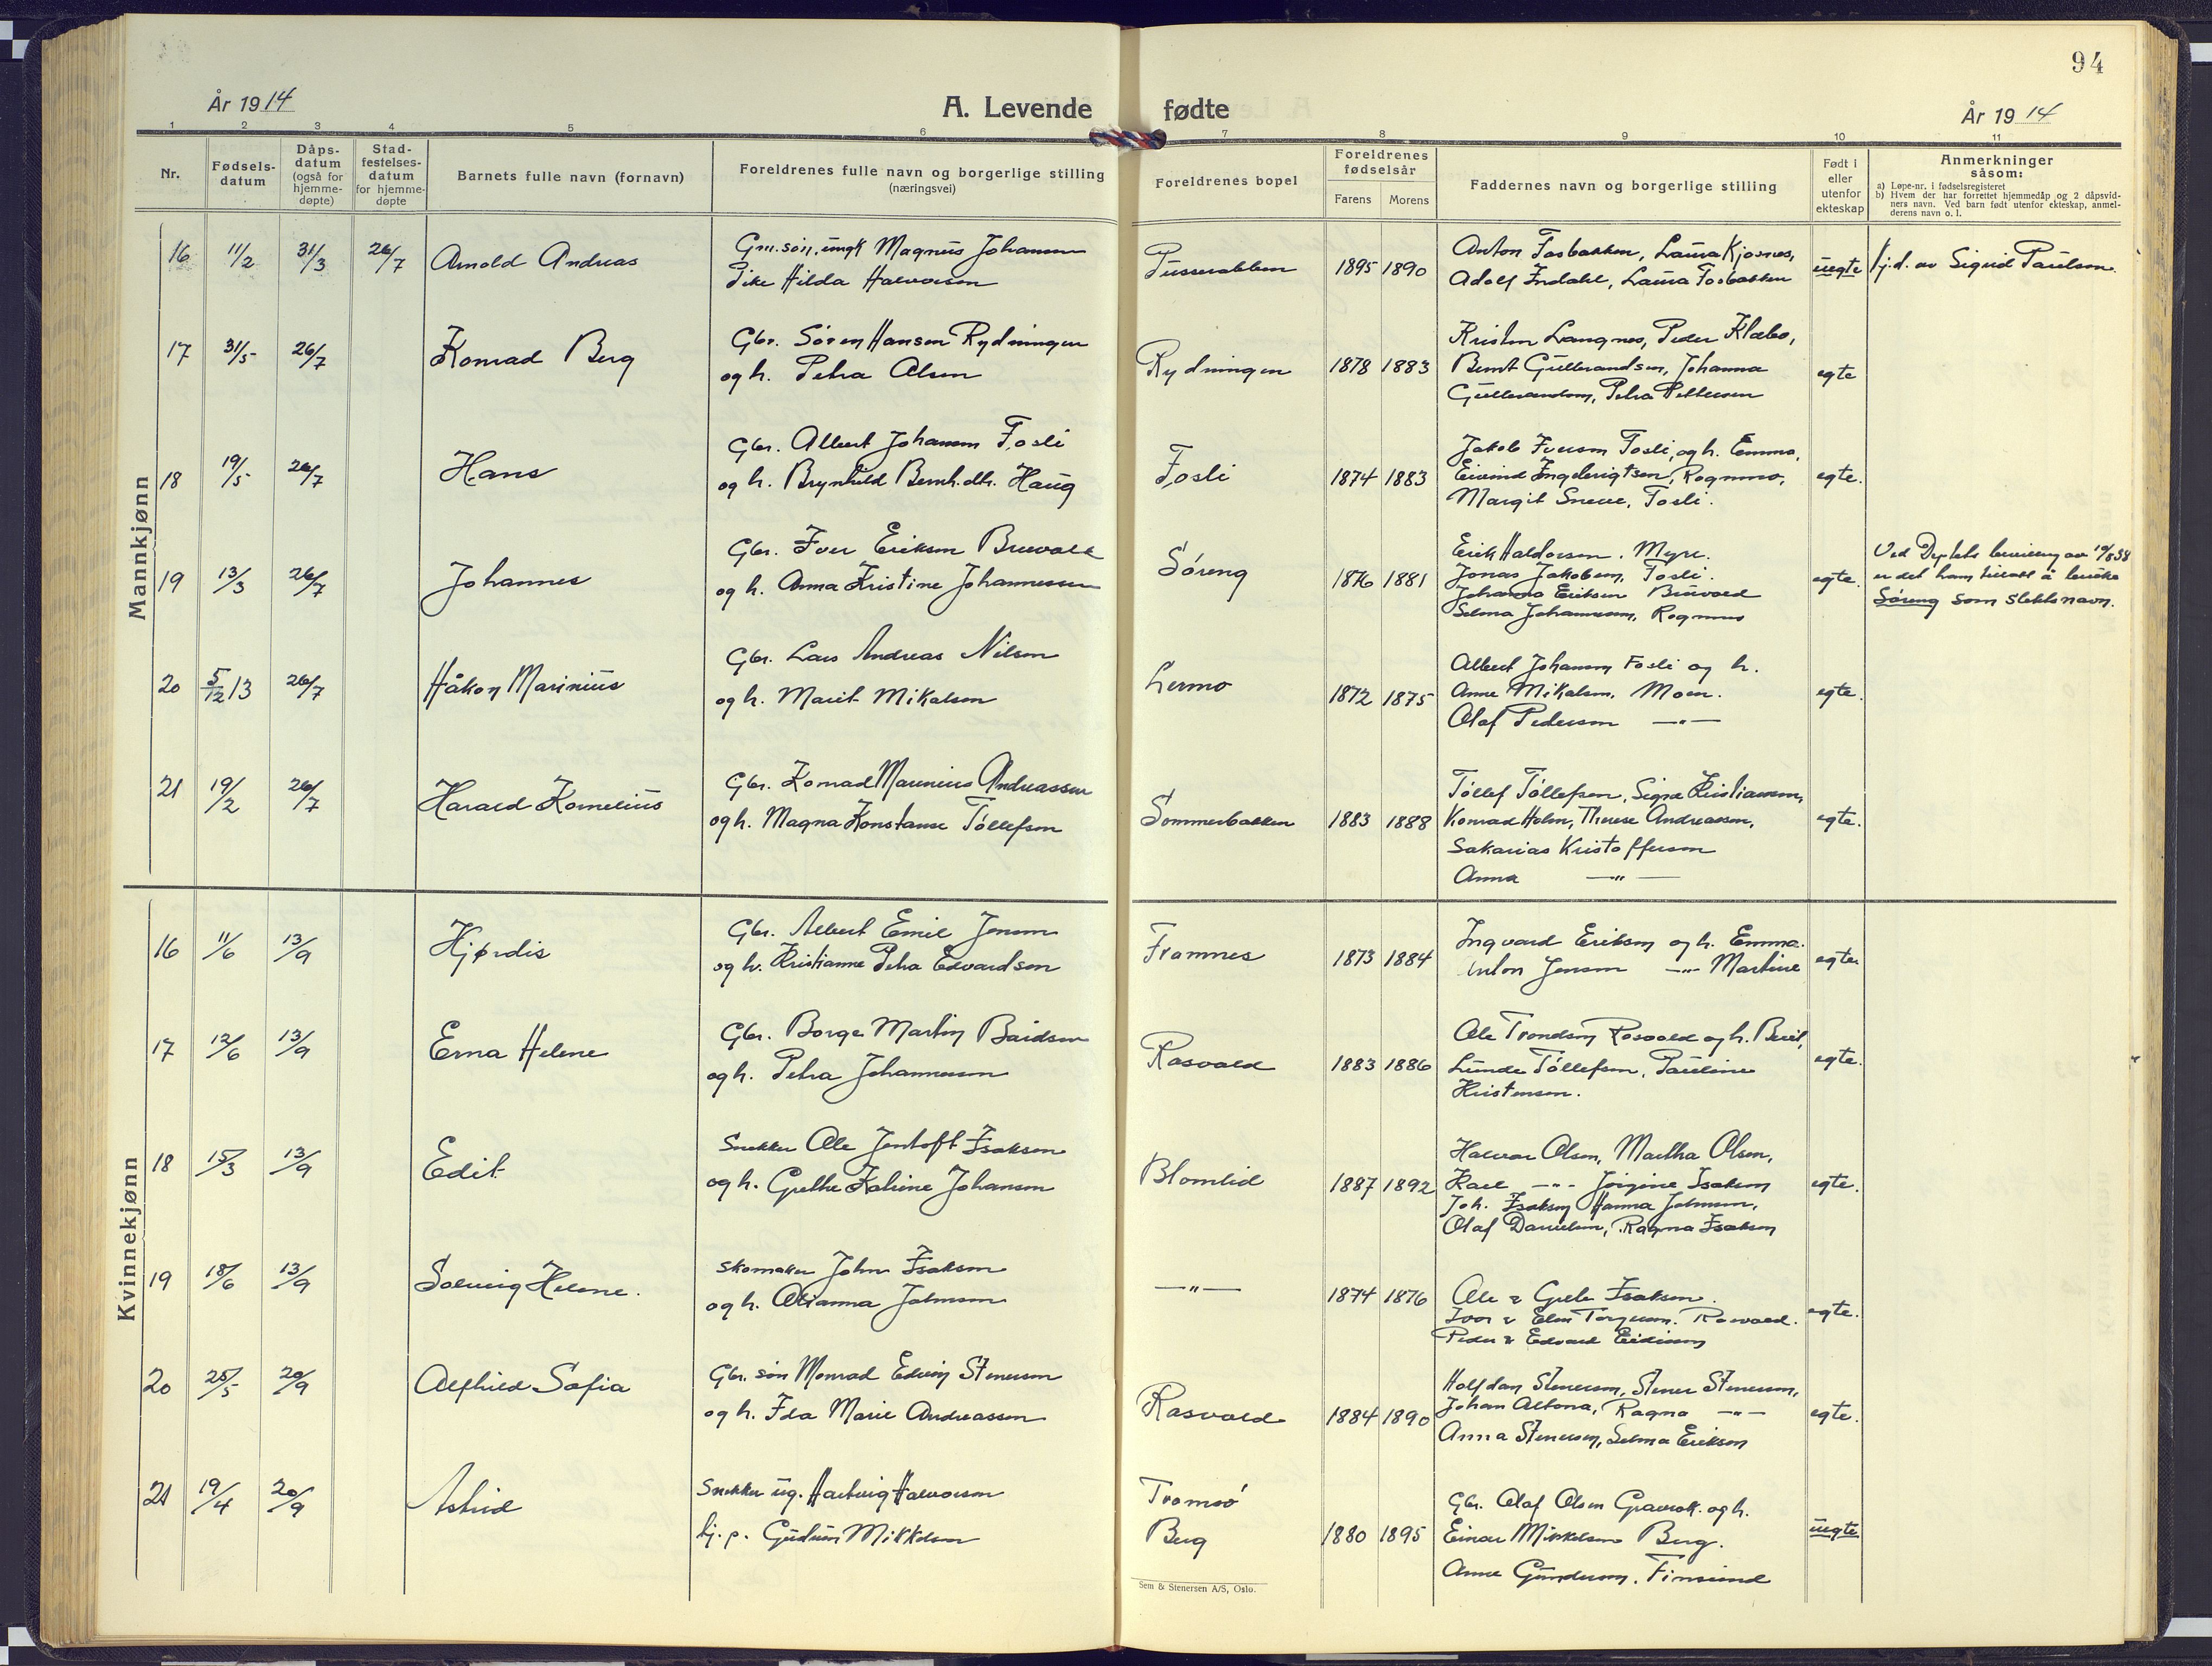 94
År 1914
A. Levende fødte
År 1914
1 2 3 4 5 6 7 8 9 10 11
Nr.
Fødsels-
datum
Dåps-
datum
(også for
hjemme-
døpte)
Stad-
festelses-
datum
for hjemme-
døpte
Barnets fulle navn (fornavn)
Foreldrenes fulle navn og borgerlige stilling
(næringsvei)
Foreldrenes bopel
Foreldrenes
fødselsår
Farens Morens
Faddernes navn og borgerlige stilling
Født i
eller
utenfor
ekteskap
Anmerkninger
såsom:
a) Løpe-nr. i fødselsregisteret
b) Hvem der har forrettet hjemmedåp og 2 dåpsvid-
ners navn. Ved barn født utenfor ekteskap, anmel-
derens navn o. l.
Mannkjønn
16 11/2 31/3 26/7 Arnold Andreas
Gm.søn, ungk Magnus Johansen
Pike Hilda Halvorsen
1895 1890
Anton Fosbakken, Laura Kjosnes,
Adolf Indahl, Laura Fosbakken
uegte
hj.d. av Sigrid Paulsen.
17 31/5 26/7 Konrad Berg
Gbr. Søren Hansen Rydningen
og h. Petra Olsen
Rydningen
1878 1883
Kristen Langnes, Peder Klæbo,
Bernt Gulbrandsen, Johanna
Gulbrandsen, Petra Pettersen
egte
18 19/5 26/7 Hans
Gbr. Albert Johansen Fosli
og h. Brynhild Bernh.dtr. Haug
Fosli
1874 1883
Jakob Iversen Fosli, og h. Emma,
Eivind Ingebrigtsen, Rognmo,
Margit Sneve, Fosli.
egte.
19 13/3 26/7 Johannes
Gbr. Iver Eriksen Buvold
og h. Anna Kristine Johannessen
Søreng
1876 1881
Erik Haldorsen. Myre.
Jonas Jakobsen, Fosli.
Johanna Eriksen Buvold
Selma Johannessen, Rognmo
egte.
Ved Dep.tets bevilling av 19/8 38
er det ham tillatt å bruke
Søreng som slektsnavn.
20 5/12 13 26/7 Håkon Marinius
Gbr. Lars Andreas Nilsen
og h. Marit Mikalsen
Lermo
1872 1875
Albert Johansen Fosli og h.
Anne Mikalsen, Moen.
Olaf Pedersen —"—
egte.
21 19/2 26/7 Harald Kornelius
Gbr. Konrad Marinius Andreassen
og h. Magna Konstanse Tøllefsen
Sommerbakken
1883 1888
Tøllef Tøllefsen, Signe Kristiansen,
Konrad Holm, Therese Andreassen,
Sakarias Kristoffersen
Anna —"—
egte.
Kvinnekjønn
16 11/6 13/9 Hjørdis
Gbr. Albert Emil Jensen
og h. Kristianne Petra Edvardsen
Framnes
1873 1884
Ingvard Eriksen og h. Emma.
Anton Jensen —"— Martine
egte.
17 12/6 13/9 Erna Helene
Gbr. Borge Martin Baidsen
og h. Petra Johannessen
Rasvold
1883 1886
Ole Trondsen Rosvold og h. Berit,
Lunde Tøllefsen, Pauline
Kristensen.
egte.
18 15/3 13/9 Edit
Snekker Ole Jentoft Isaksen
og h. Grethe Katrine Johansen
Blomlid
1887 1892
Halvor Olsen, Martha Olsen,
Karl —"— Jørgine Isaksen
Joh. Isaksen Hanna Johnsen,
Olaf Danielsen, Ragna Isaksen
egte.
19 18/6 13/9 Solveig Helene.
Skomaker John Isaksen
og h. Olianna Johnsen
—"—
1874 1876
Ole & Grete Isaksen.
Ivar & Elen Torgersen. Rosvold.
Peder & Edvard Eidissen
egte.
20 25/5 20/9 Alfhild Sofia
Gbr. søn Monrad Edvin Stenersen
og h. Ida Marie Andreassen
Rasvold
1884 1890
Halfdan Stenersen, Stener Stenersen,
Johan Altona, Ragna —"—
Anna Stenersen, Selma Eriksen
egte.
21 19/4 20/9 Astrid
Snekker ug. Hartvig Halvorsen
hj. p. Gudrun Mikkelsen
Tromsø
Berg
1880 1895
Gbr. Olaf Olsen Gravrok. og h.
Einar Mikkelsen Berg.
Anne Gundersen. Finsund
uegte
Sem & Stenersen A/S, Oslo.